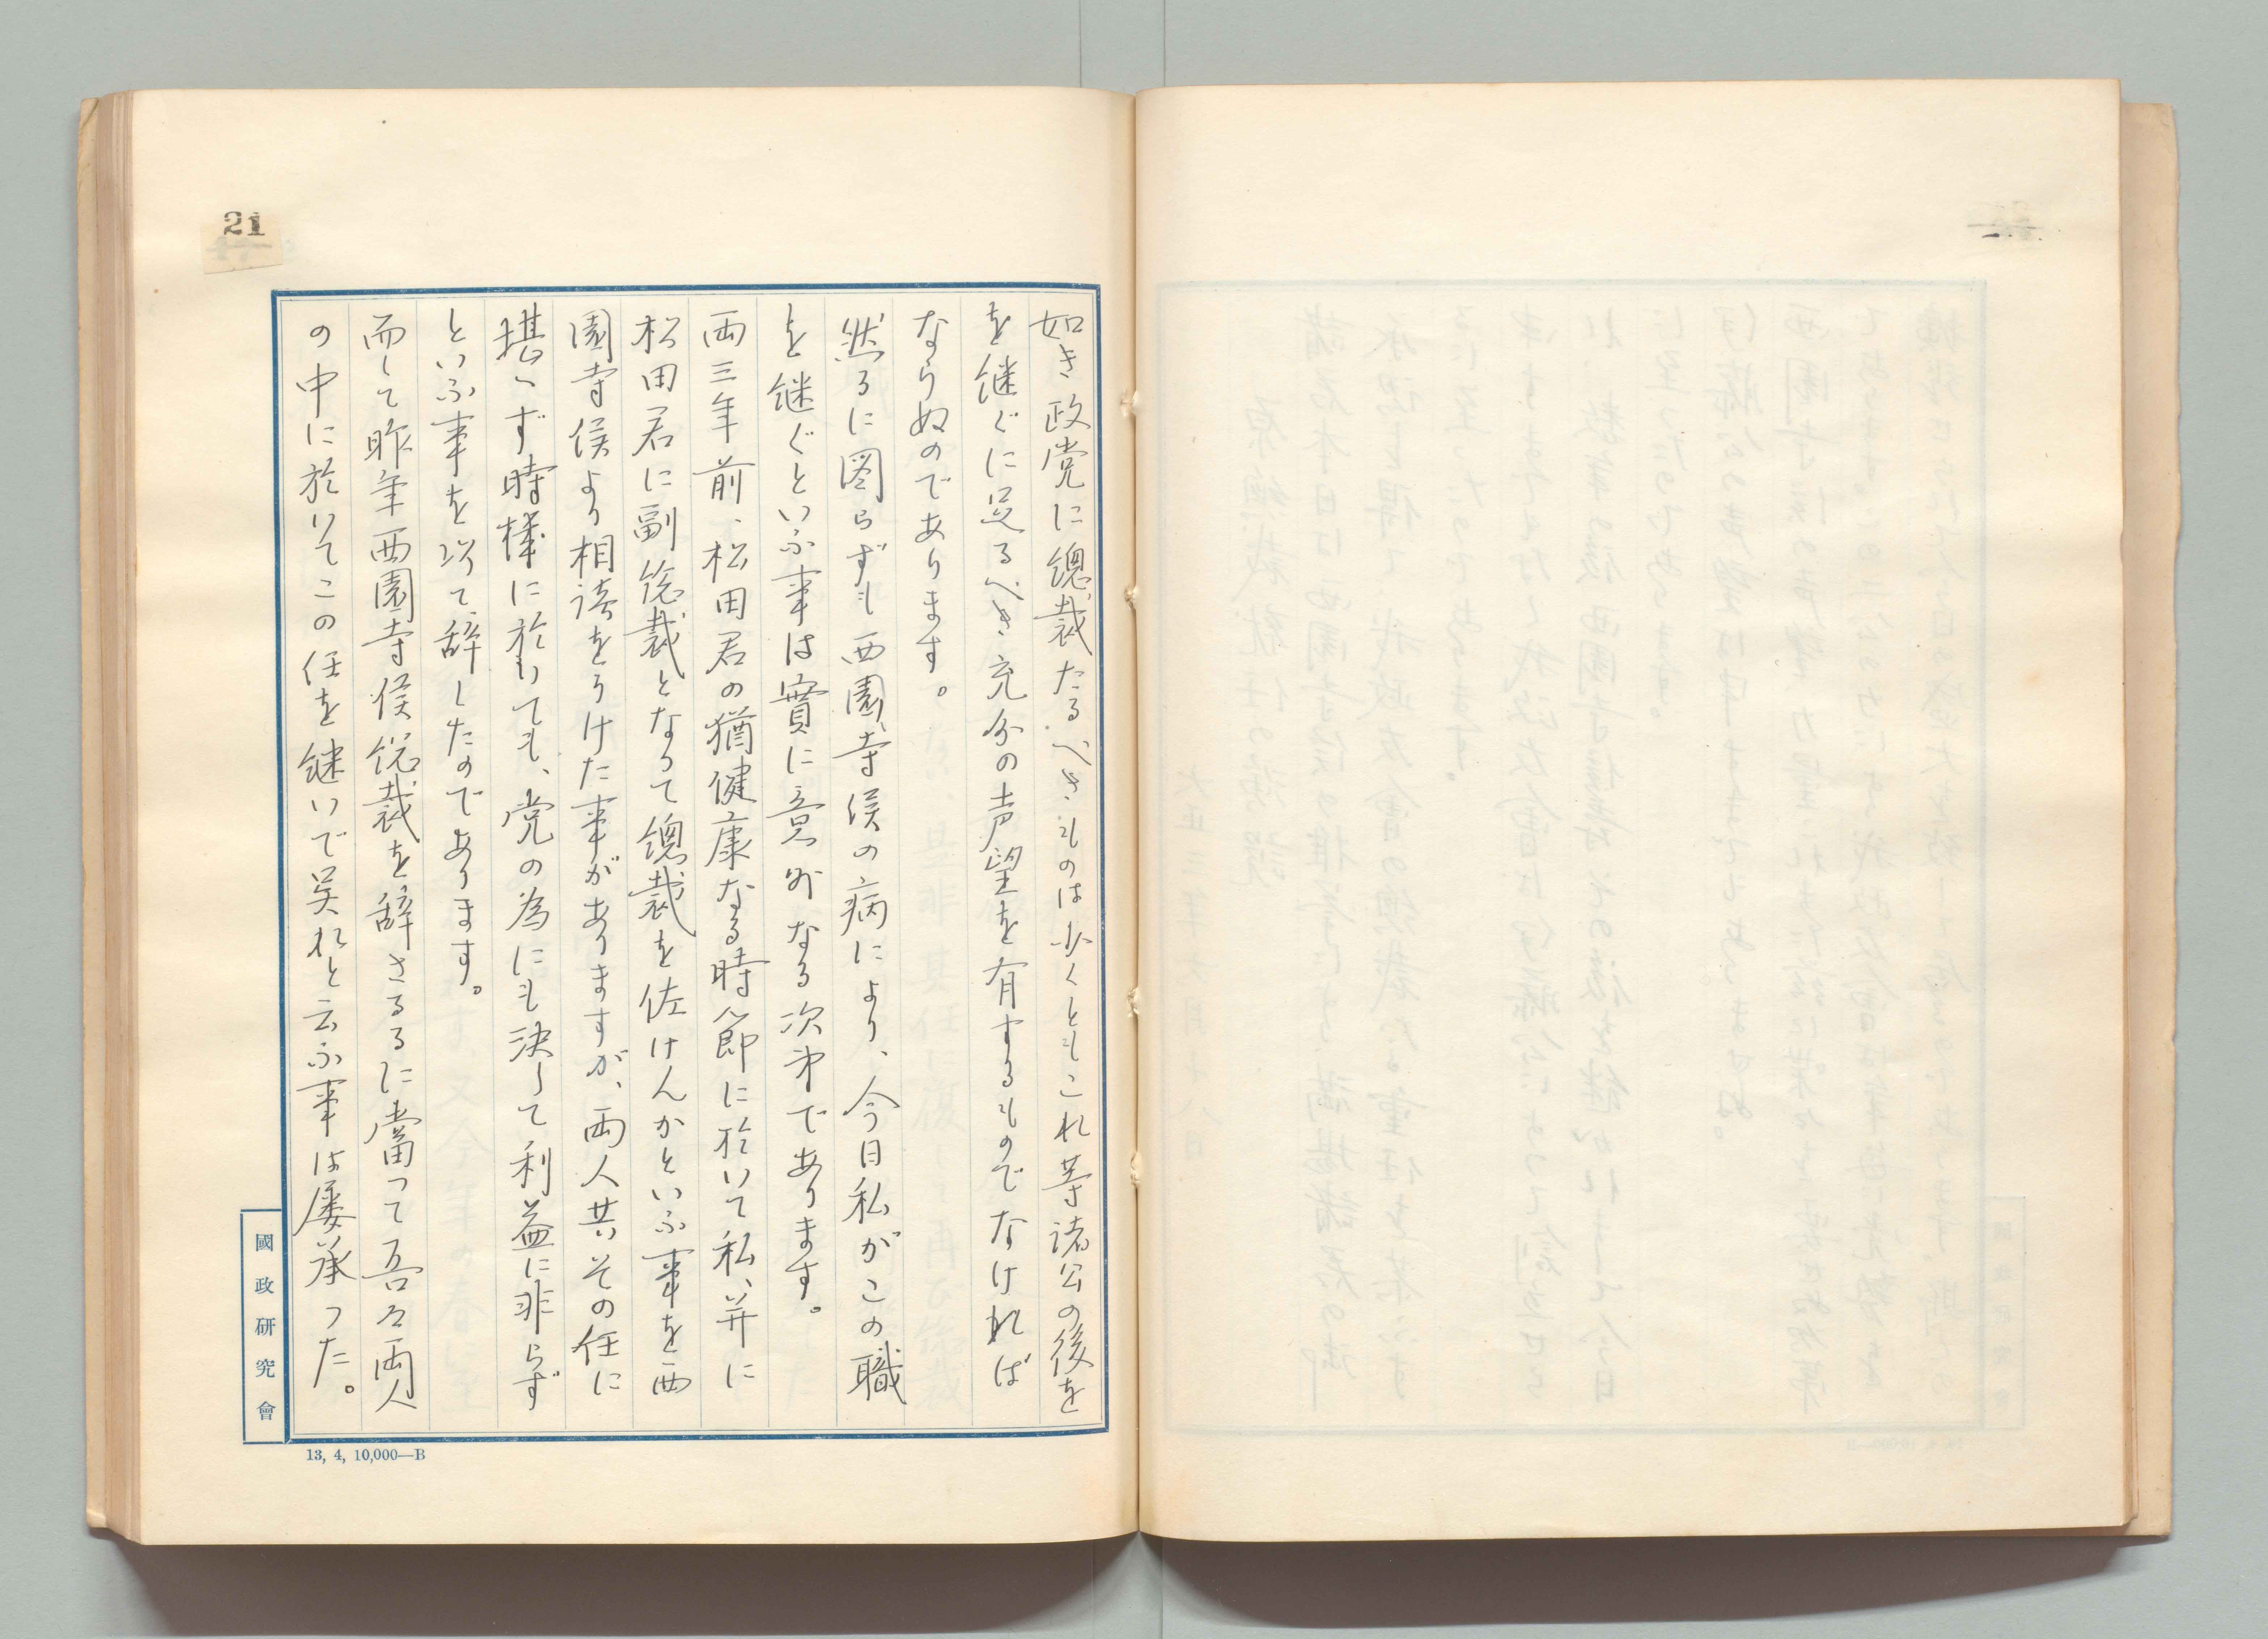 21
如き政党に總裁たるべきものは少くともこれ等諸公の後を
を継ぐに足るべき充分の声望を有するものでなければ
ならぬのであります。
然るに図らずも西園寺侯の病により、今日私がこの職
を継ぐといふ事は實に意外なる次第であります。
両三年前、松田君の猶健康なる時節に於いて私、并に
松田君に副総裁となつて總裁を佐けんかといふ事を西
園寺侯より相談をうけた事がありますが、両人共その任に
堪へず時様に於いても、党の為にも決して利益に非らず
といふ事を以て、辞したのであります。
而して昨年西園寺侯総裁を辞さるるに當つて吾々両人
の中に於いてこの任を継いで呉れと云ふ事は屡承つた。
國政研究會
13, 4, 10,000—B